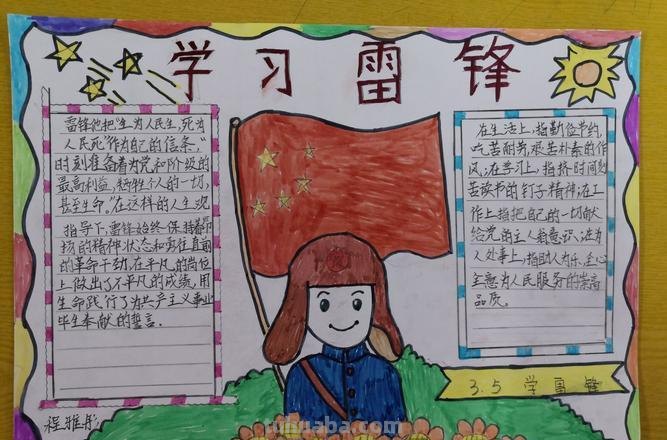 学习雷锋
雷锋他把“生为人民生，死为
人民死”作为自己的信条，
时刻准备着为党和阶级的
最高利益，牺牲个人的一切，
甚至生命。”在这样的人生观
指导下，雷锋始终保持着
的精神状态和
的革命干劲，在平凡的岗位
上做出了不平凡的成绩，用
生命践行了为共产主义事业
毕生奉献的誓言。
在生活上，指勤俭节约，
吃苦耐劳，艰苦朴素的作
风；在学习上，指挤时间刻
苦读书的钉子精神；在工
作上指把自己的一切献
给党的主人翁意识；在为
人处事上，指助人为乐，全心
全意为人民服务的崇高
品质。
3.5 学雷锋
程雅彤
ruhuaba.com